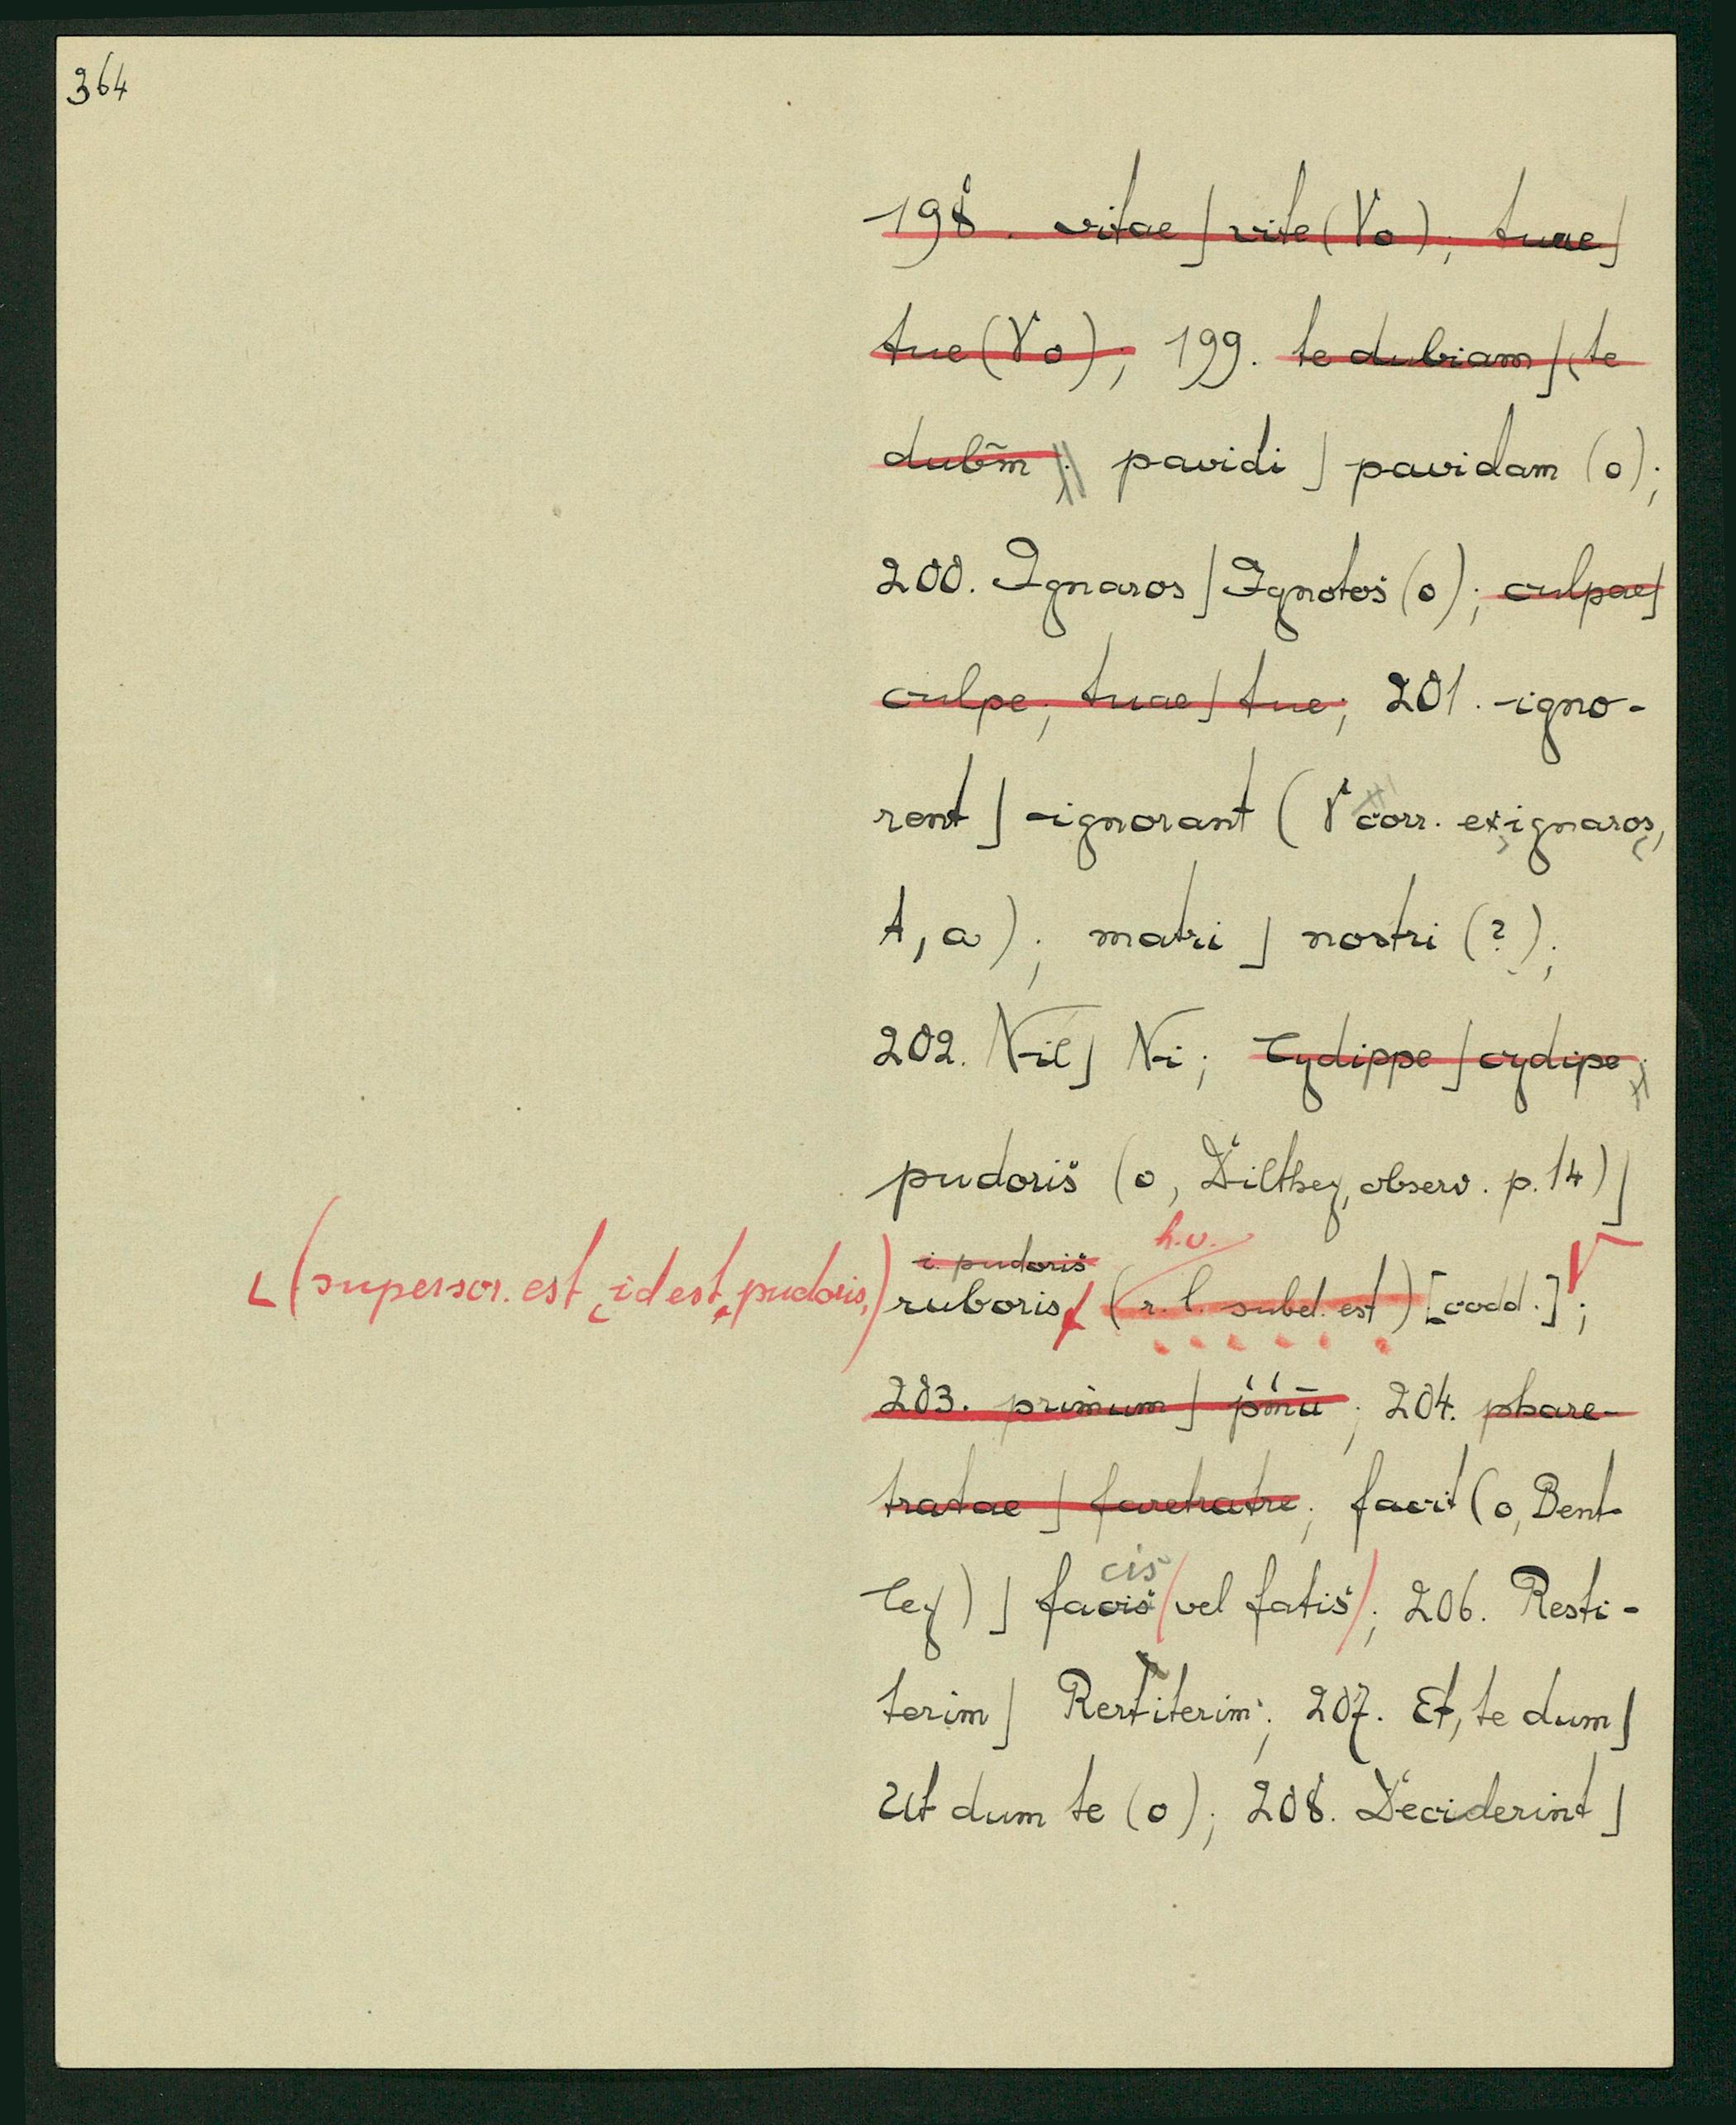 364
198. vitae] vite (Vo); tuae]
tue (Vo); 199. te dubiam] te
dubīm; pavidi] pavidam (o);
200. Ignaros] Ignotos (o); culpae]
culpe; tuae] tue; 201. igno-
rent] ignorant (V corr. ex ignaros,
A, a); matri] nostri (?);
202. Nil] Ni; Cydippe] cydipe;
pudoris (o, Dilthey, observ. p. 14)]
h.v.
i. pudoris
(superscr. est ‹id est› pudoris,) ruboris (r. l. subd. est) [codd.];
203. primum] pṁū; 204. phare-
tratae] faretratre; facit (o, Bent-
cis
ley)] facis (vel fatis); 206. Resti-
terim] Rertiterim; 207. Et, te dum]
Ut dum te (o); 208. Deciderint]